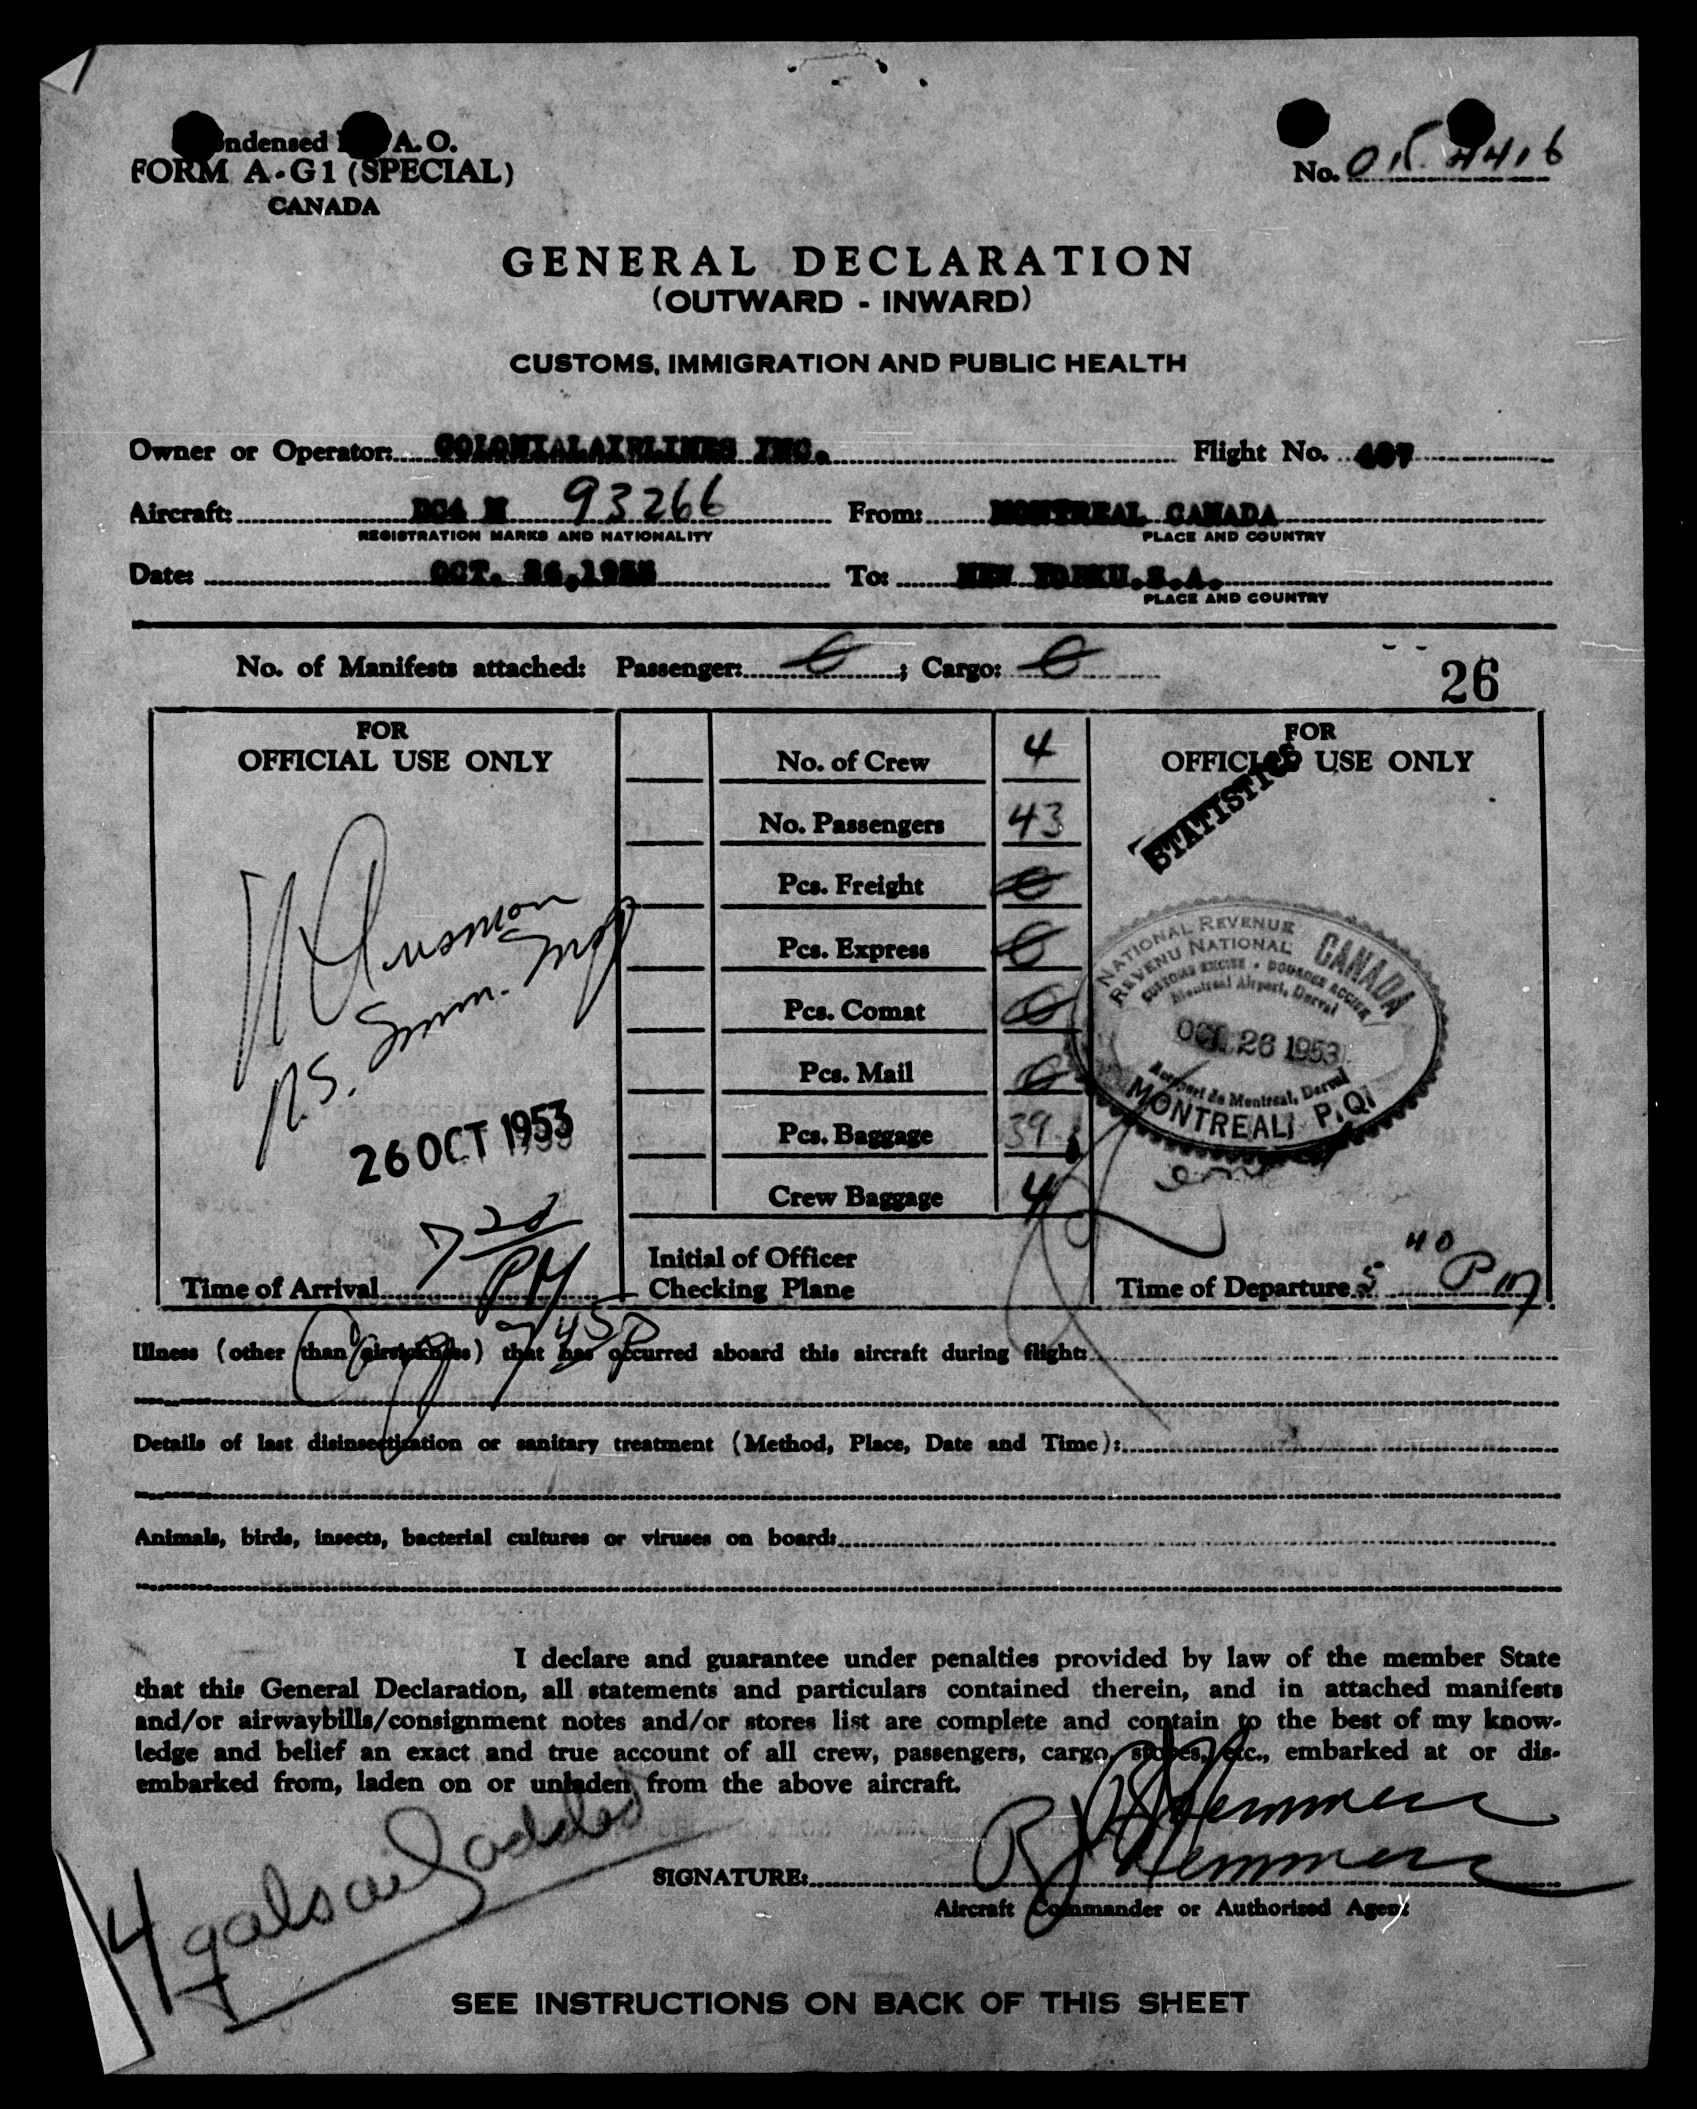 ndensed A. O.
FORM A-G1 (SPECIAL)
CANADA
No.
GENERAL DECLARATION
(OUTWARD - INWARD)
CUSTOMS, IMMIGRATION AND PUBLIC HEALTH
Owner or Operator: COLONIALAIRLINES INC. Flight No. 407
Aircraft: DC4 N 93266 From: MONTREAL CANADA
REGISTRATION MARKS AND NATIONALITY PLACE AND COUNTRY
Date: OCT. 26,1953 To: NEW YORKU.S.A.
PLACE AND COUNTRY
No. of Manifests attached: Passenger: ; Cargo:
26
FOR
OFFICIAL USE ONLY
26 OCT 1953
7 20 PM
Time of Arrival
No. of Crew 4
No. Passengers 43
Pcs. Freight
Pcs. Express
Pcs. Comat
Pcs. Mail
Pcs. Baggage 39
Crew Baggage 4
Initial of Officer
Checking Plane
FOR
OFFICIAL USE ONLY
STATISTICS
NATIONAL REVENUE
REVENU NATIONAL
CANADA
CUSTOMS EXCISE - DOUANES ACCISE
Montreal Airport, Dorval
OCT 26 1953
Aeroport de Montreal, Dorval
MONTREAL, P.Q.
Time of Departure 5 40 P m
Illness (other than airsickness) that has occurred aboard this aircraft during flight:
Details of last disinsectization or sanitary treatment (Method, Place, Date and Time):
Animals, birds, insects, bacterial cultures or viruses on board:
I declare and guarantee under penalties provided by law of the member State
that this General Declaration, all statements and particulars contained therein, and in attached manifests
and/or airwaybills/consignment notes and/or stores list are complete and contain to the best of my know-
ledge and belief an exact and true account of all crew, passengers, cargo, stores, etc., embarked at or dis-
embarked from, laden on or unladen from the above aircraft.
SIGNATURE:
Aircraft Commander or Authorized Agent
4 gals oil added
SEE INSTRUCTIONS ON BACK OF THIS SHEET